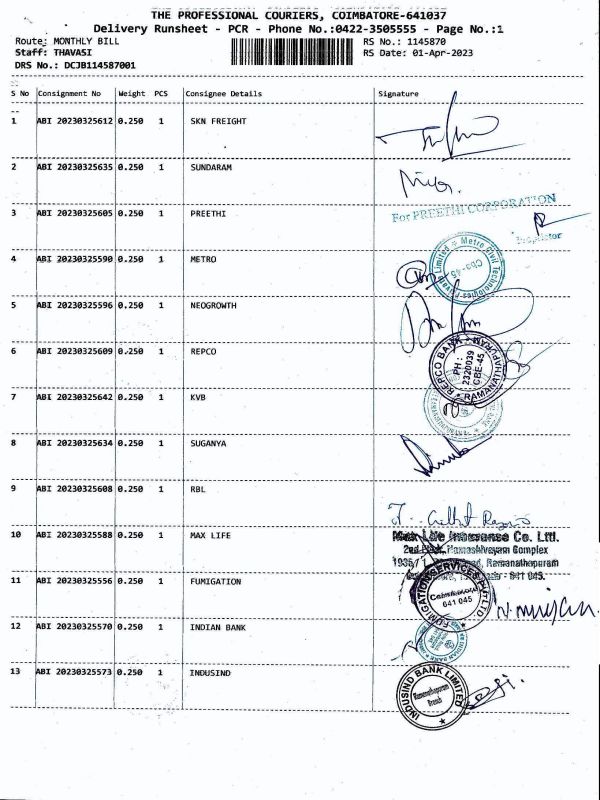 THE PROFESSIONAL COURIERS, COIMBATORE-641037
Delivery Runsheet - PCR - Phone No.:0422-3505555 - Page No.:1
Route: MONTHLY BILL
RS No.: 1145870
Staff: THAVASI
RS Date: 01-Apr-2023
DRS No.: DCJB114587001
S No Consignment No Weight PCS Consignee Details Signature
1 ABI 20230325612 0.250 1 SKN FREIGHT
2 ABI 20230325635 0.250 1 SUNDARAM
For PREETHI CORPORATION
3 ABI 20230325605 0.250 1 PREETHI
Proprietor
4 ABI 20230325590 0.250 1 METRO
Metro Civil Technologies Private Limited
Cbe-45
5 ABI 20230325596 0.250 1 NEOGROWTH
6 ABI 20230325609 0.250 1 REPCO
REPCO BANK
RAMANATHAPURAM
PH :
2320039
CBE-45
7 ABI 20230325642 0.250 1 KVB
8 ABI 20230325634 0.250 1 SUGANYA
9 ABI 20230325608 0.250 1 RBL
10 ABI 20230325588 0.250 1 MAX LIFE
Max Life Insurance Co. Ltd.
2nd Floor, Ramashivayam Complex
Ramanathapuram
641 045.
11 ABI 20230325556 0.250 1 FUMIGATION
FUMIGATION SERVICES PVT LTD
Coimbatore
641 045
12 ABI 20230325570 0.250 1 INDIAN BANK
13 ABI 20230325573 0.250 1 INDUSIND
INDUSIND BANK LIMITED
Ramanathapuram
Branch